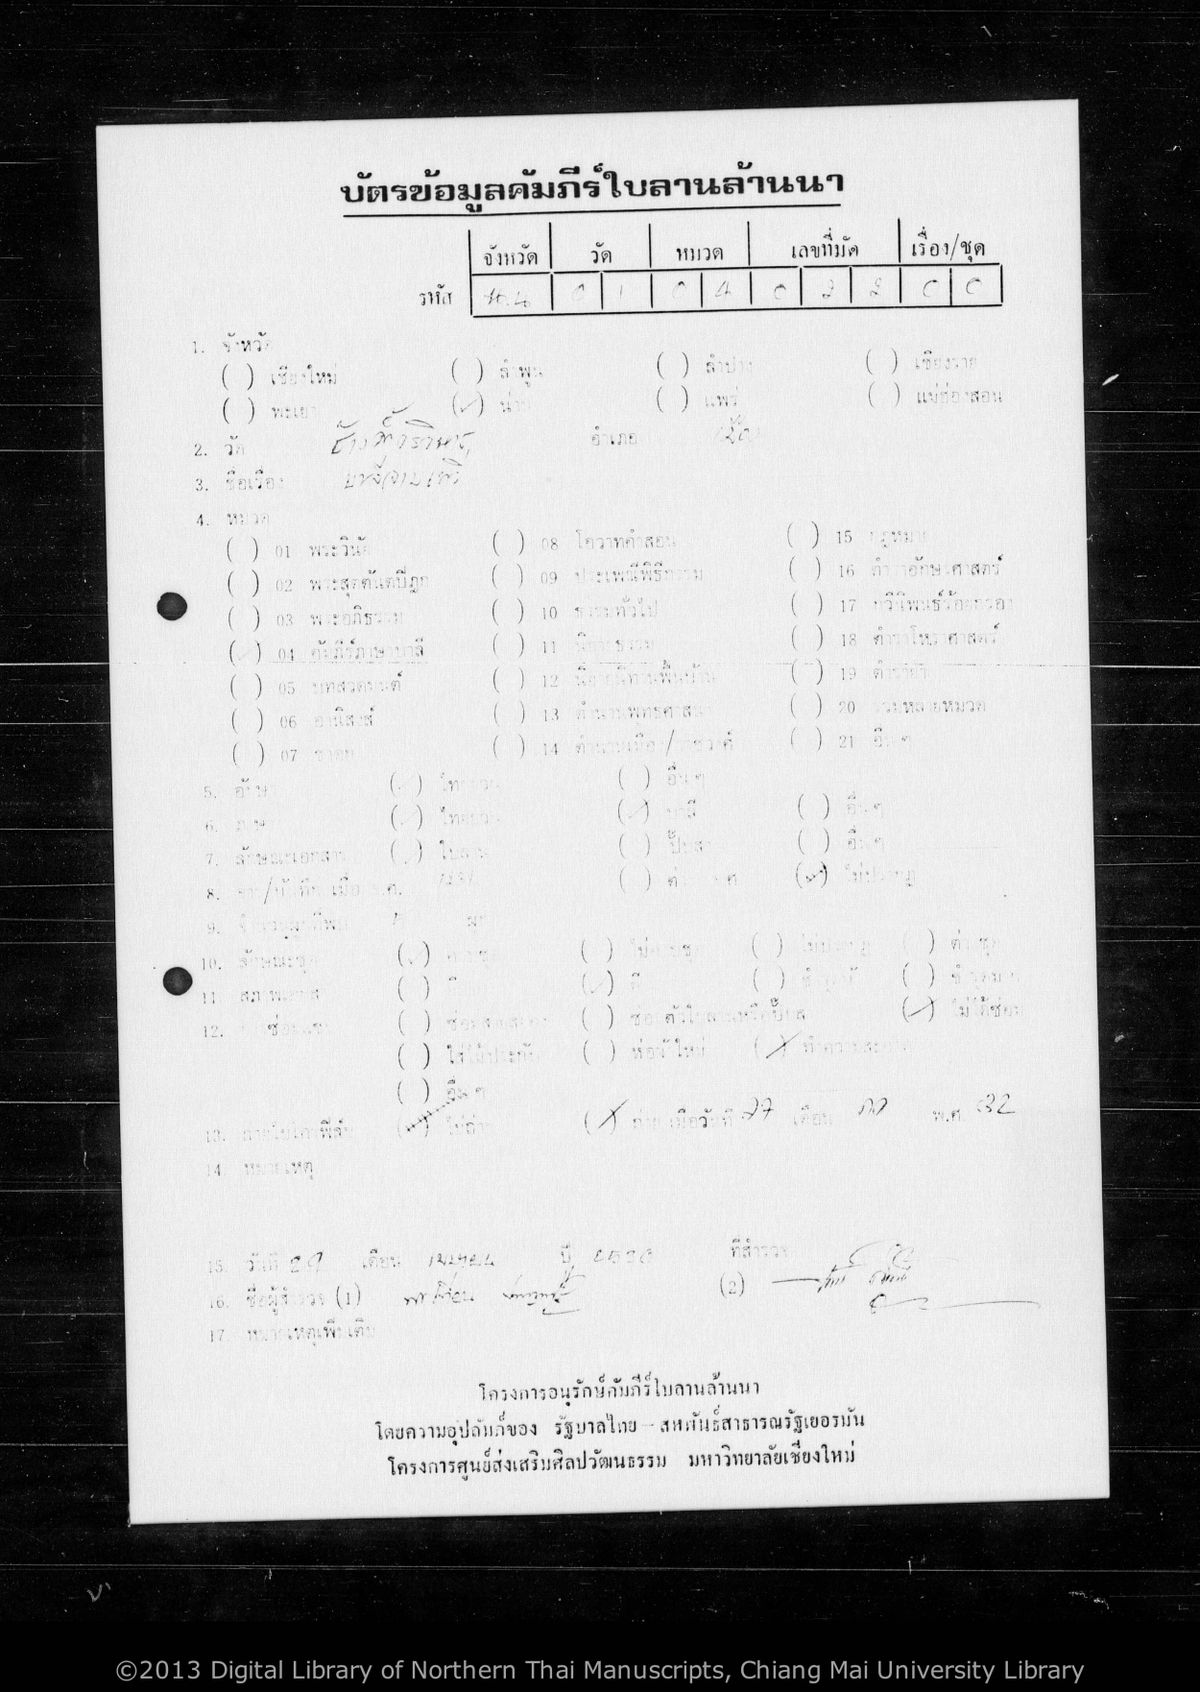 บัตรข้อมูลคัมภีร์ใบลานล้านนา
จังหวัด วัด หมวด เลขที่มัด เรื่อง/ชุด
รหัส 0 1 0 4 0 2 2 0 0
1. จังหวัด
( ) เชียงใหม่ ( ) ลำพูน ( ) ลำปาง ( ) เชียงราย
( ) พะเยา (✓) น่าน ( ) แพร่ ( ) แม่ฮ่องสอน
2. วัด ช้างค้ำวรวิหาร อำเภอ เมือง
3. ชื่อเรื่อง
4. หมวด
( ) 01 พระวินัย ( ) 08 โอวาทคำสอน ( ) 15 กฎหมาย
( ) 02 พระสุตตันตปิฎก ( ) 09 ประเพณีพิธีกรรม ( ) 16 ตำราอักษรศาสตร์
( ) 03 พระอภิธรรม ( ) 10 ธรรมทั่วไป ( ) 17 กวีนิพนธ์ร้อยกรอง
(✓) 04 คัมภีร์ภาษาบาลี ( ) 11 นิยายธรรม ( ) 18 ตำราโหราศาสตร์
( ) 05 บทสวดมนต์ ( ) 12 นิยายนิทานพื้นบ้าน ( ) 19 ตำรายา
( ) 06 อานิสงส์ ( ) 13 ตำนานพุทธศาสนา ( ) 20 รวมหลายหมวด
( ) 07 ชาดก ( ) 14 ตำนานเมือง/ราชวงศ์ ( ) 21 อื่น ๆ
5. อักษร (✓) ไทยยวน ( ) อื่น ๆ
6. ภาษา (✓) ไทยยวน (✓) บาลี ( ) อื่น ๆ
7. ลักษณะเอกสาร (✓) ใบลาน ( ) พับสา ( ) อื่น ๆ
8. จาร/บันทึก เมื่อ จ.ศ. ( ) (✓) ไม่ปรากฏ
9. จำนวนผูกที่พบ ผูก
10. ลักษณะชุด (✓) ครบชุด ( ) ไม่ครบชุด ( ) ไม่ปรากฏ ( ) ต่างชุด
11. สภาพเอกสาร ( ) (✓) ดี ( ) ชำรุด ( ) ชำรุดมาก
12. ซ่อมแซม ( ) ( ) ซ่อมตัวใบลานหรือพับสา (✓) ไม่ได้ซ่อม
( ) ใส่ไม้ประกับ ( ) ห่อผ้าใหม่ (✓) ทำความสะอาด
( ) อื่น ๆ
13. ถ่ายไมโครฟิล์ม ไม่ถ่าย (✓) ถ่าย เมื่อวันที่ 27 เดือน พ.ศ. 32
14. หมายเหตุ
15. วันที่ 29 เดือน เมษายน ปี 2530 ที่สำรวจ
16. ชื่อผู้สำรวจ (1) (2)
17. หมายเหตุเพิ่มเติม
โครงการอนุรักษ์คัมภีร์ใบลานล้านนา
โดยความอุปถัมภ์ของ รัฐบาลไทย – สหพันธ์สาธารณรัฐเยอรมัน
โครงการศูนย์ส่งเสริมศิลปวัฒนธรรม มหาวิทยาลัยเชียงใหม่
©2013 Digital Library of Northern Thai Manuscripts, Chiang Mai University Library